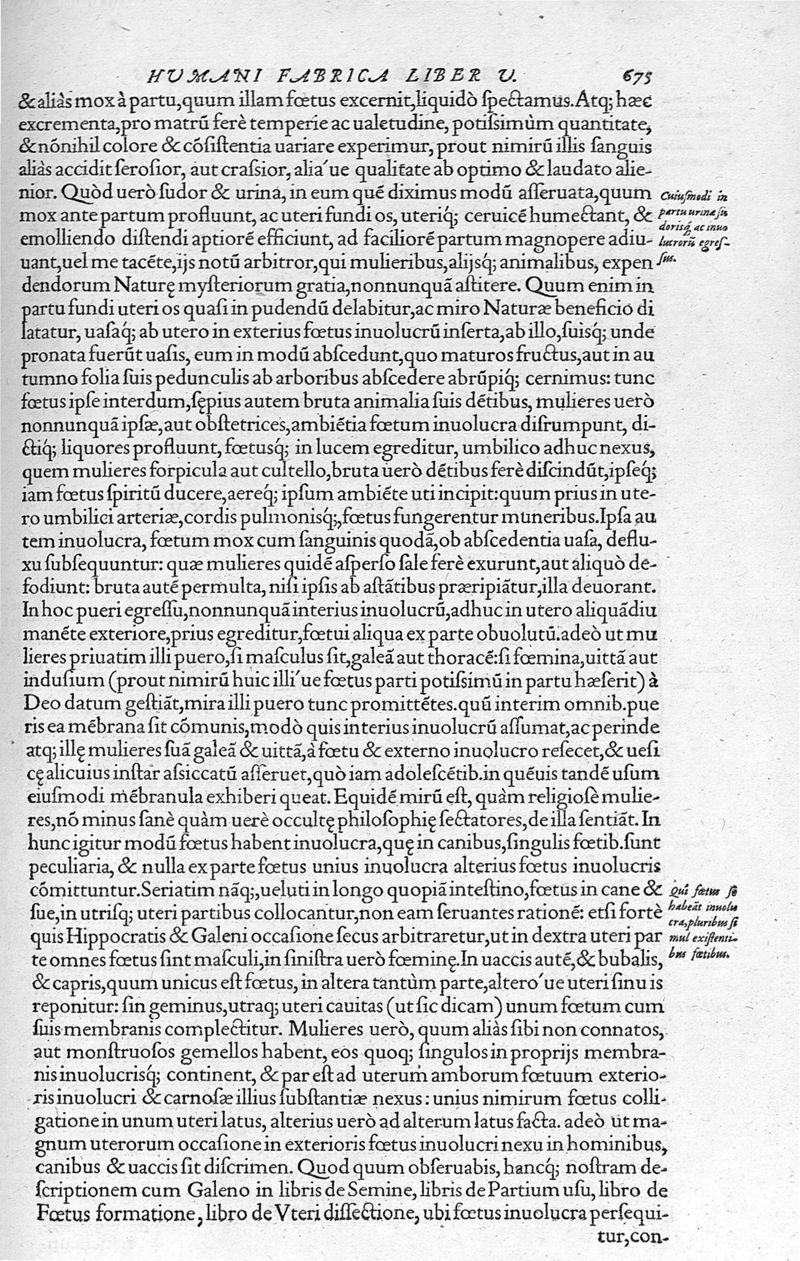 HVMANI FABRICA LIBER V. 675
& aliàs mox à partu, quum illam fœtus excernit, liquidò ſpectamus. Atq; hæc
excrementa, pro matrū ferè temperie ac ualetudine, potiſsimùm quantitate,
& nōnihil colore & cōſiſtentia uariare experimur, prout nimirū illis ſanguis
aliàs accidit ſeroſior, aut craſsior, alia'ue qualitate ab optimo & laudato alie-
nior. Quòd uerò ſudor & urina, in eum quē diximus modū aſſeruata, quum
Cuiuſmodi in
mox ante partum profluunt, ac uteri fundi os, uteriq́; ceruicē humectant, &
partu urinæ ſu
doriſq́; ac inuo
emolliendo diſtendi aptiorē efficiunt, ad faciliorē partum magnopere adiu-
lucrorū egreſ-
uant, uel me tacēte, ijs notū arbitror, qui mulieribus, alijsq́; animalibus, expen
ſus.
dendorum Naturę myſteriorum gratia, nonnunquā aſtitere. Quum enim in
partu fundi uteri os quaſi in pudendū delabitur, ac miro Naturæ beneficio di
latatur, uaſaq́; ab utero in exterius fœtus inuolucrū inſerta, ab illo, ſuisq́; unde
pronata fuerūt uaſis, eum in modū abſcedunt, quo maturos fructus, aut in au
tumno folia ſuis pedunculis ab arboribus abſcedere abrūpiq́; cernimus: tunc
fœtus ipſe interdum, ſępius autem bruta animalia ſuis dētibus, mulieres uerò
nonnunquā ipſæ, aut obſtetrices, ambiētia fœtum inuolucra diſrumpunt, di-
ctiq́; liquores profluunt, fœtusq́; in lucem egreditur, umbilico adhuc nexus,
quem mulieres forpicula aut cultello, bruta uerò dētibus ferè diſcindūt, ipſeq́;
iam fœtus ſpiritū ducere, aereq́; ipſum ambiēte uti incipit: quum prius in ute-
ro umbilici arteriæ, cordis pulmonisq́;, fœtus fungerentur muneribus. Ipſa au
tem inuolucra, fœtum mox cum ſanguinis quodā, ob abſcedentia uaſa, deflu-
xu ſubſequuntur: quæ mulieres quidē aſperſo ſale ferè exurunt, aut aliquò de-
fodiunt: bruta autē permulta, niſi ipſis ab aſtātibus præripiātur, illa deuorant.
In hoc pueri egreſſu, nonnunquā interius inuolucrū, adhuc in utero aliquādiu
manēte exteriore, prius egreditur, fœtui aliqua ex parte obuolutū. adeò ut mu
lieres priuatim illi puero, ſi maſculus ſit, galeā aut thoracē: ſi fœmina, uittā aut
induſium (prout nimirū huic illi'ue fœtus parti potiſsimū in partu hæſerit) à
Deo datum geſtiāt, mira illi puero tunc promittētes. quū interim omnib. pue
ris ea mēbrana ſit cōmunis, modò quis interius inuolucrū aſſumat, ac perinde
atq; illę mulieres ſuā galeā & uittā, à fœtu & externo inuolucro reſecet, & ueſi
cę alicuius inſtar aſsiccatū aſſeruet, quò iam adoleſcētib. in quēuis tandē uſum
eiuſmodi mēbranula exhiberi queat. Equidē mirū eſt, quàm religioſè mulie-
res, nō minus ſanè quàm uerè occultę philoſophię ſectatores, de illa ſentiāt. In
hunc igitur modū fœtus habent inuolucra, quę in canibus, ſingulis fœtib. ſunt
peculiaria, & nulla ex parte fœtus unius inuolucra alterius fœtus inuolucris
cōmittuntur. Seriatim nāq́;, ueluti in longo quopiā inteſtino, fœtus in cane &
Qui fœtus ſe
ſue, in utriſq; uteri partibus collocantur, non eam ſeruantes rationē: etſi fortè
habeāt inuolu
cra, pluribus ſi
quis Hippocratis & Galeni occaſione ſecus arbitraretur, ut in dextra uteri par
mul exiſtenti-
te omnes fœtus ſint maſculi, in ſiniſtra uerò fœminę. In uaccis autē, & bubalis,
bus fœtibus.
& capris, quum unicus eſt fœtus, in altera tantùm parte, altero'ue uteri ſinu is
reponitur: ſin geminus, utraq; uteri cauitas (ut ſic dicam) unum fœtum cum
ſuis membranis complectitur. Mulieres uerò, quum aliàs ſibi non connatos,
aut monſtruoſos gemellos habent, eos quoq; ſingulos in proprijs membra-
nis inuolucriſq́; continent, & par eſt ad uterum amborum fœtuum exterio-
ris inuolucri & carnoſæ illius ſubſtantiæ nexus: unius nimirum fœtus colli-
gatione in unum uteri latus, alterius uerò ad alterum latus facta. adeò ut ma-
gnum uterorum occaſione in exterioris fœtus inuolucri nexu in hominibus,
canibus & uaccis ſit diſcrimen. Quod quum obſeruabis, hancq́; noſtram de-
ſcriptionem cum Galeno in libris de Semine, libris de Partium uſu, libro de
Fœtus formatione, libro de Vteri diſſectione, ubi fœtus inuolucra perſequi-
tur, con-